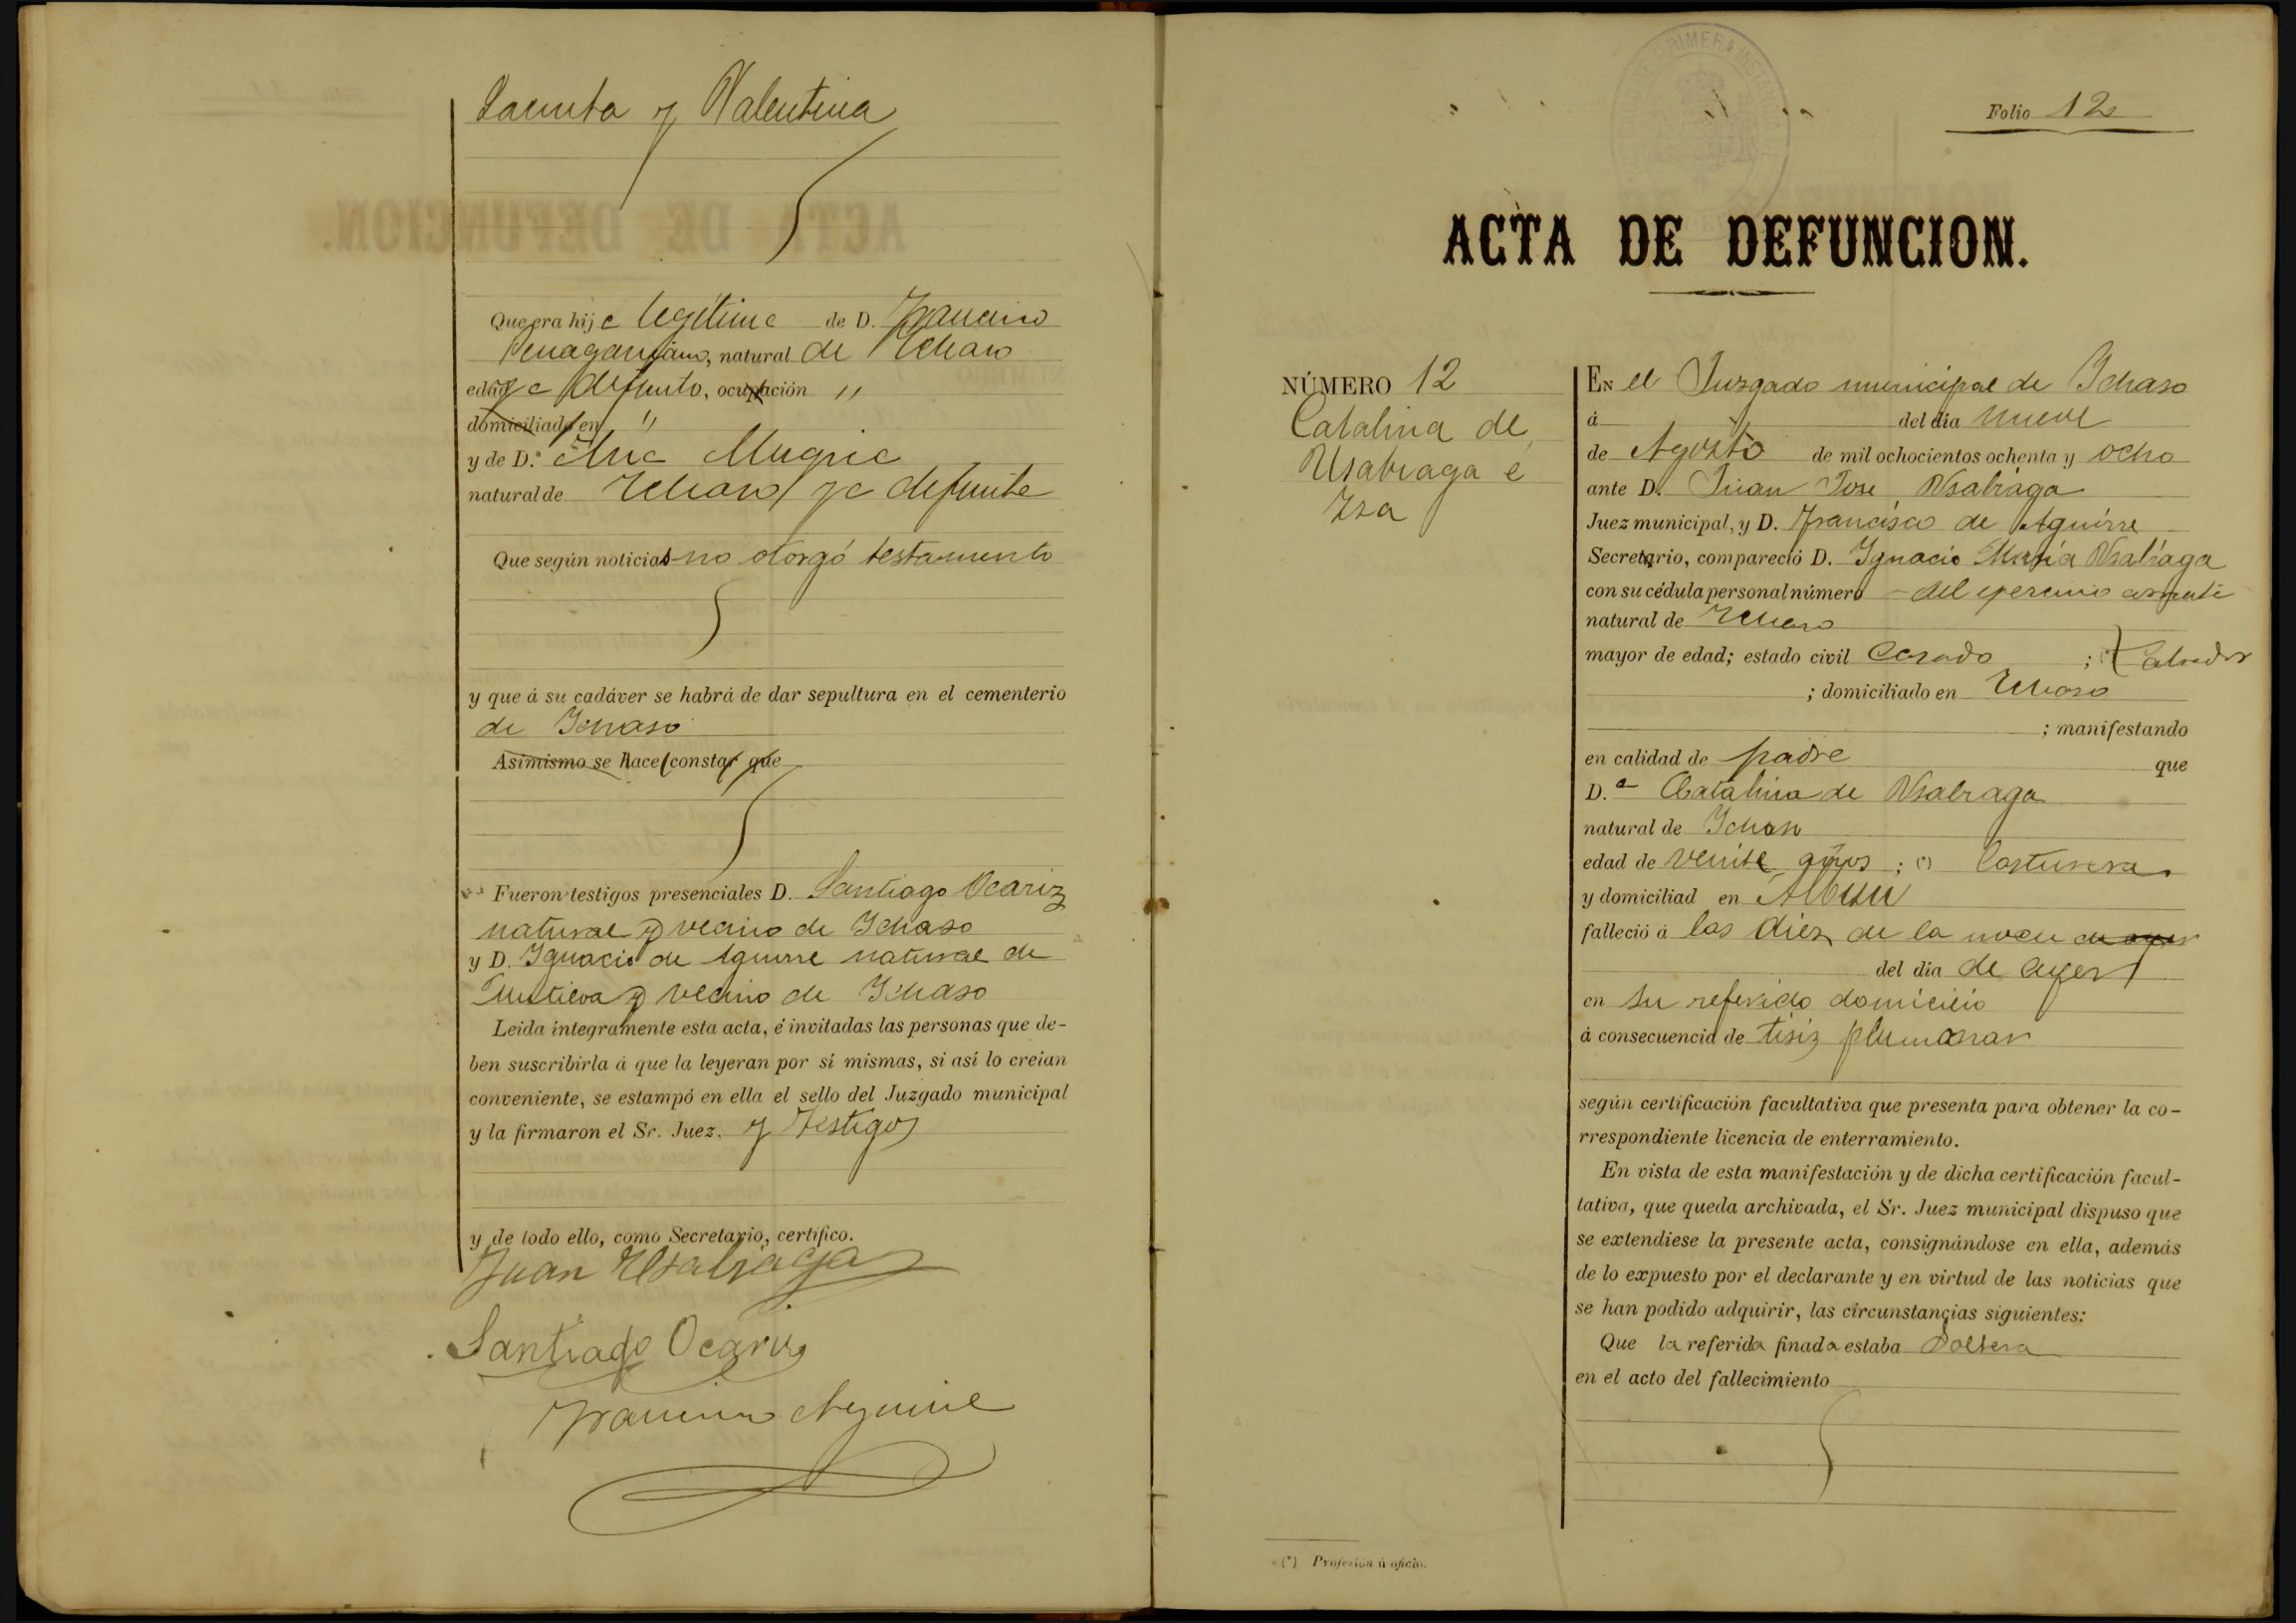 Jacinta y Valentina
Que era hija legitima de D. Francisco
natural de Ichaso
edad ya defunto, ocupación "
domiciliado en "
y de D.ª Ana Mugica
natural de Ichaso ya defunta
Que según noticias no otorgó testamento
y que á su cadáver se habrá de dar sepultura en el cementerio
de Ichaso
Asimismo se hace constar que
Fueron testigos presenciales D. Santiago Ocariz
natural y vecino de Ichaso
y D. Ignacio de Aguirre natural de
y vecino de Ichaso
Leida íntegramente esta acta, é invitadas las personas que de-
ben suscribirla á que la leyeran por sí mismas, si así lo creían
conveniente, se estampó en ella el sello del Juzgado municipal
y la firmaron el Sr. Juez. y testigos
y de todo ello, como Secretario, certifico.
Juan Usabiaga
Santiago Ocariz
Francisco Aguirre
Folio 12
ACTA DE DEFUNCION.
NÚMERO 12
Catalina de
Usabiaga é
Isa
EN el Juzgado municipal de Ichaso
á del día nueve
de Agosto de mil ochocientos ochenta y ocho
ante D. Juan Jose Usabiaga
Juez municipal, y D. Francisco de Aguirre
Secretario, compareció D. Ignacio Maria Usabiaga
con su cédula personal número - del ejercicio
natural de Ichaso
mayor de edad; estado civil Casado ; (*) Labrador
; domiciliado en Ichaso
; manifestando
en calidad de padre que
D.ª Catalina de Usabiaga
natural de Ichaso
edad de veinte años ; (*) Costurera
y domiciliad en
falleció á las diez de la noche de ayer
del día de ayer
en su referido domicilio
á consecuencia de tisis plumonar
según certificación facultativa que presenta para obtener la co-
rrespondiente licencia de enterramiento.
En vista de esta manifestación y de dicha certificación facul-
tativa, que queda archivada, el Sr. Juez municipal dispuso que
se extendiese la presente acta, consignándose en ella, además
de lo expuesto por el declarante y en virtud de las noticias que
se han podido adquirir, las circunstancias siguientes:
Que la referida finada estaba Soltera
en el acto del fallecimiento
(*) Profesión ú oficio.